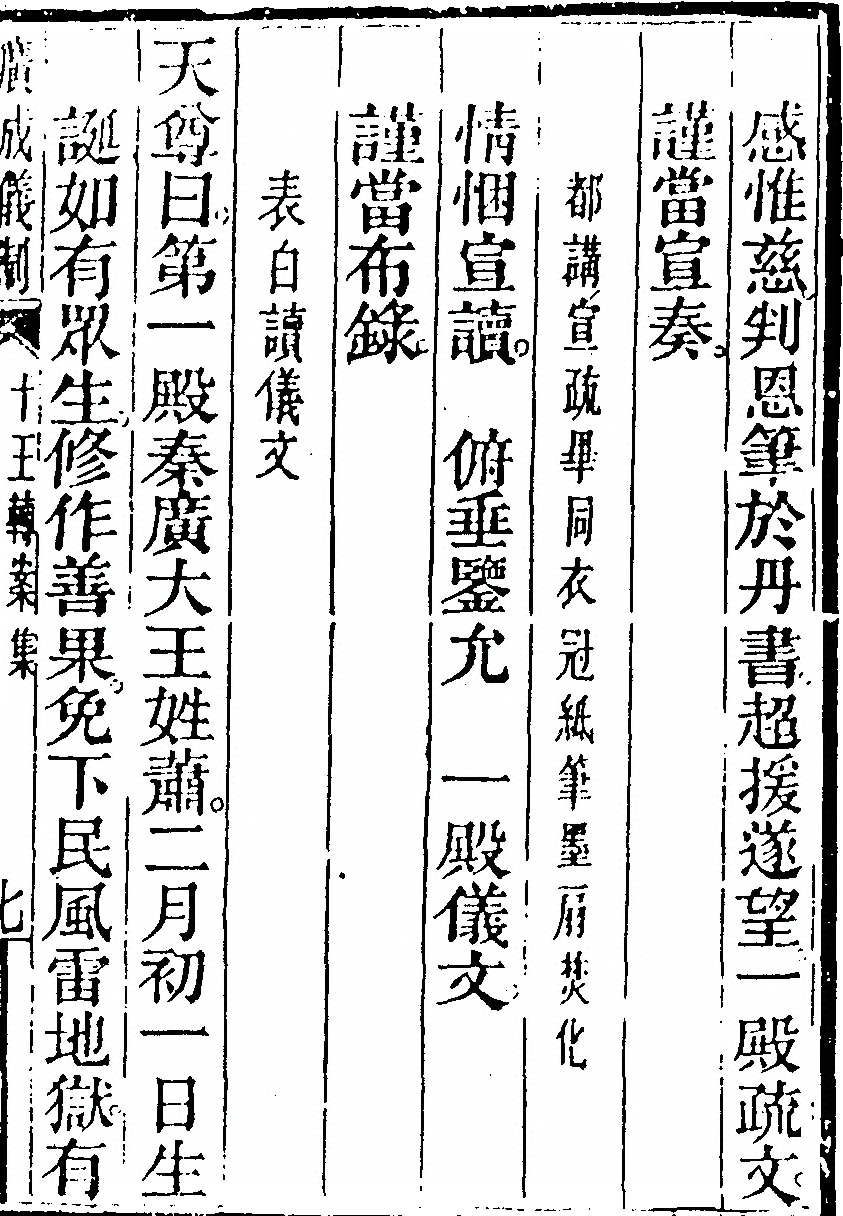 感惟慈判恩筆於丹書超援遂望一殿疏文。
謹當宣奏。
都講宣疏畢同衣冠紙筆墨一屑焚化
情悃宣讀。 俯垂鑒允 一殿儀文。
謹當布錄。
表白讀儀文
天尊曰。第一殿秦廣大王姓蕭。二月初一日生
誕如有眾生。修作善果。免下民風雷地獄。有
廣成儀制 十王轉案集